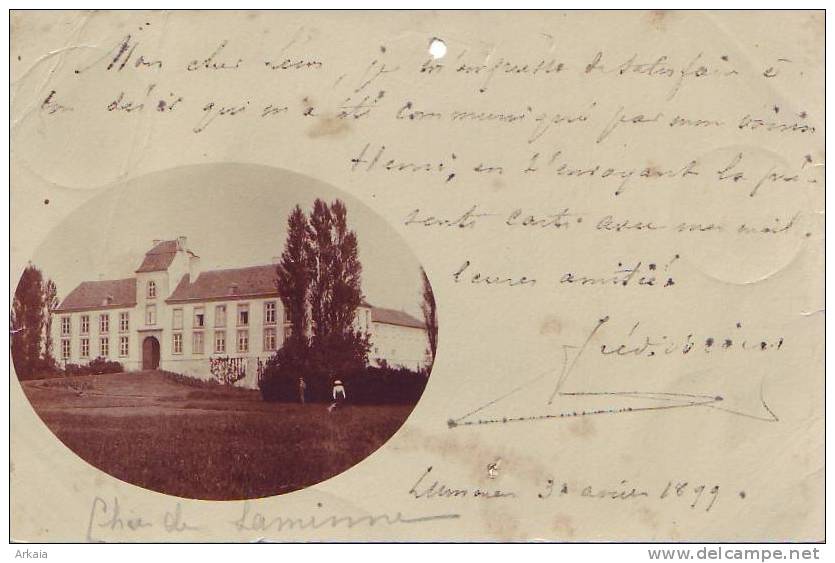 Mon cher Léon, je m'empresse de satisfaire à
ton désir qui m'a été communiqué par mon voisin
Henri, en t'envoyant la pré-
sente carte avec mes meil-
leures amitiés
30 avril 1899.
Chau de Laminne
Arkaia
http://www.delcampe.net